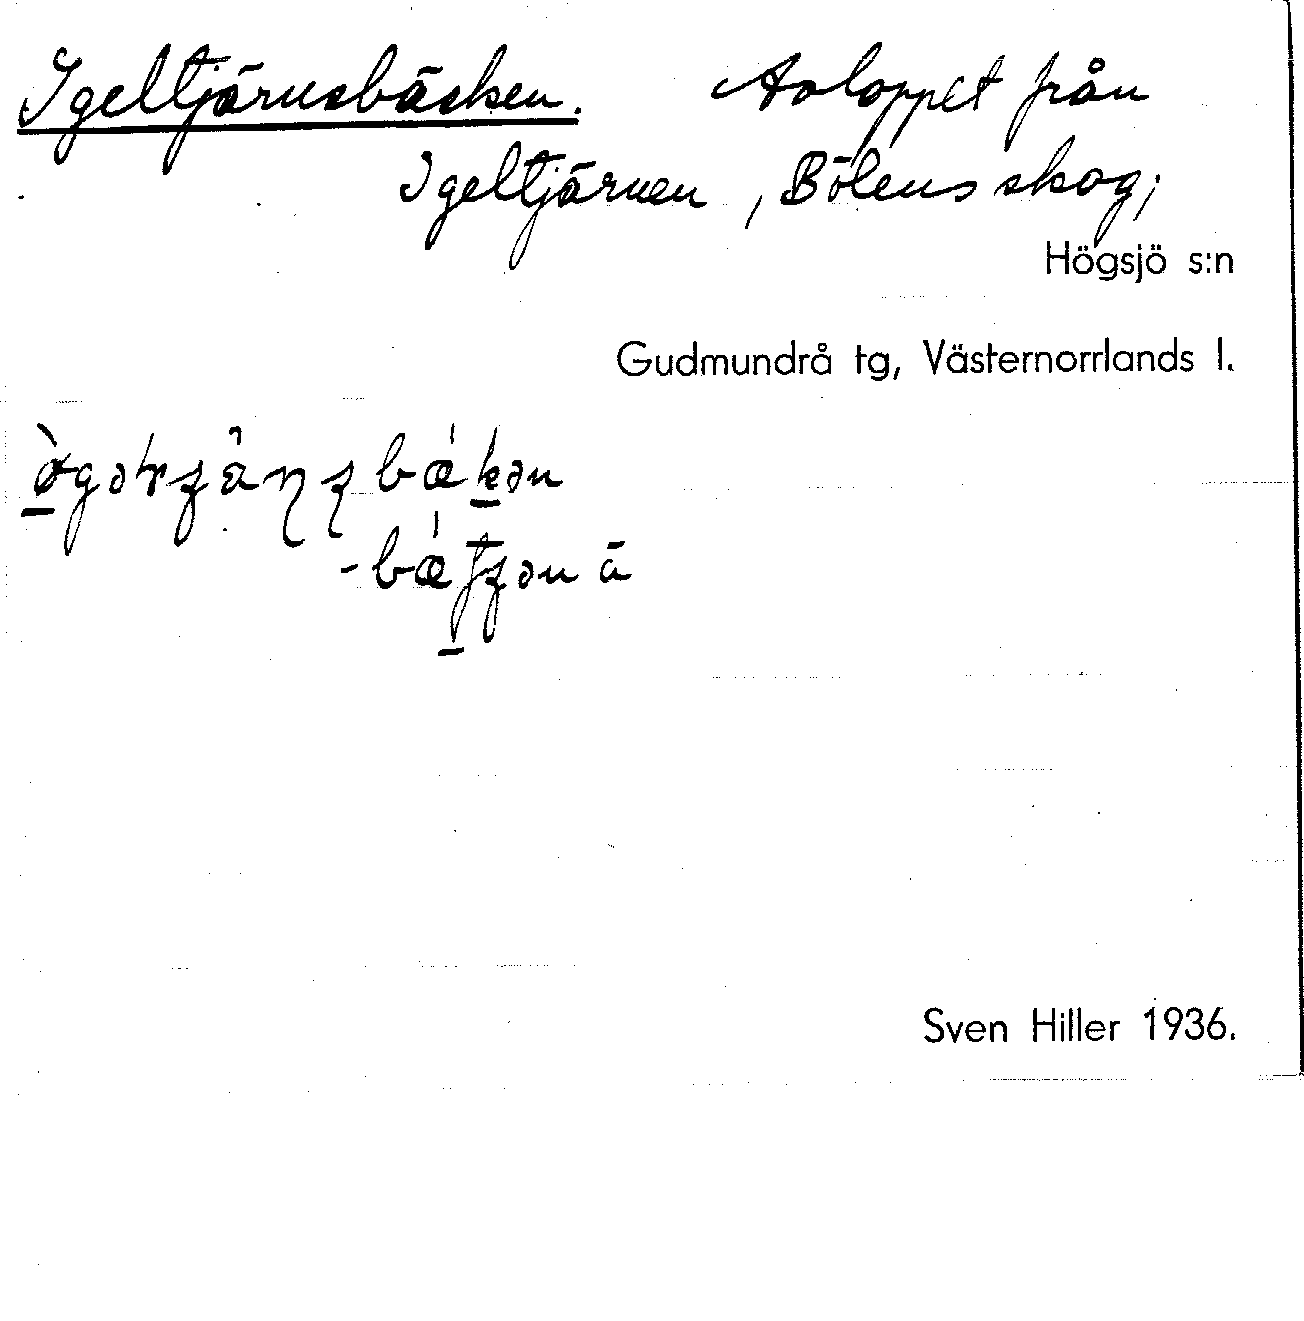 Igeltjärnsbäcken. Avloppet från
Igeltjärnen, Bölens skog;
Högsjö s:n
Gudmundrå tg, Västernorrlands l.
Sven Hiller 1936.